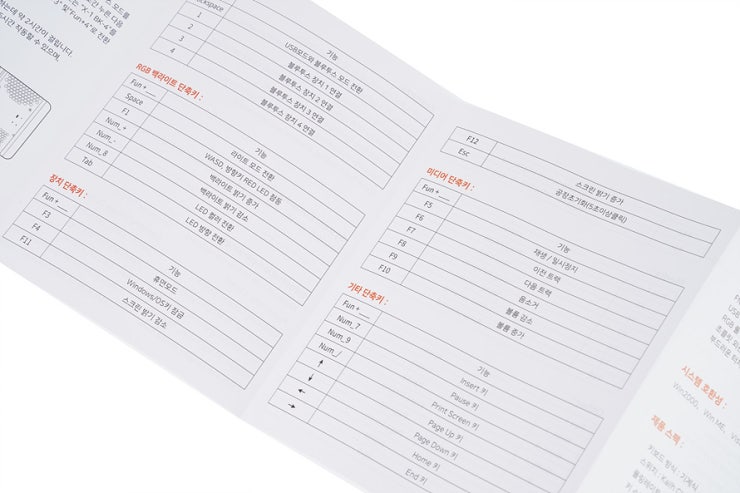 스 모드를
간 누른 다음
"X-1 BK-4"를
3" 및"Fun+4"로 전환
하는데 약 2시간이 걸립니다.
시간 작동할 수 있으며,
기능
ckspace USB모드와 블루투스 모드 전환
1 블루투스 장치 1 연결
2 블루투스 장치 2 연결
3 블루투스 장치 3 연결
4 블루투스 장치 4 연결
RGB 백라이트 단축키 :
Fun +__ 기능
Space 라이트 모드 전환
F1 WASD, 방향키 RED LED 점등
Num_+ 백라이트 밝기 증가
Num_- 백라이트 밝기 감소
Num_8 LED 컬러 전환
Tab LED 방향 전환
장치 단축키 :
Fun +__ 기능
F3 휴면모드
F4 Windows/OS키 잠금
F11 스크린 밝기 감소
F12 스크린 밝기 증가
Esc 공장초기화(5초이상클릭)
미디어 단축키 :
Fun +__ 기능
F5 재생 / 일시정지
F6 이전 트랙
F7 다음 트랙
F8 음소거
F9 볼륨 감소
F10 볼륨 증가
기타 단축키 :
Fun +__ 기능
Num_7 Insert 키
Num_9 Pause 키
Num_/ Print Screen 키
↑ Page Up 키
↓ Page Down 키
← Home 키
→ End 키
USB
RGB
부드러운 터치
시스템 호환성 :
Win2000, Win ME, Vis
제품 스펙 :
키보드 방식 : 기계식
스위치 : Kailh